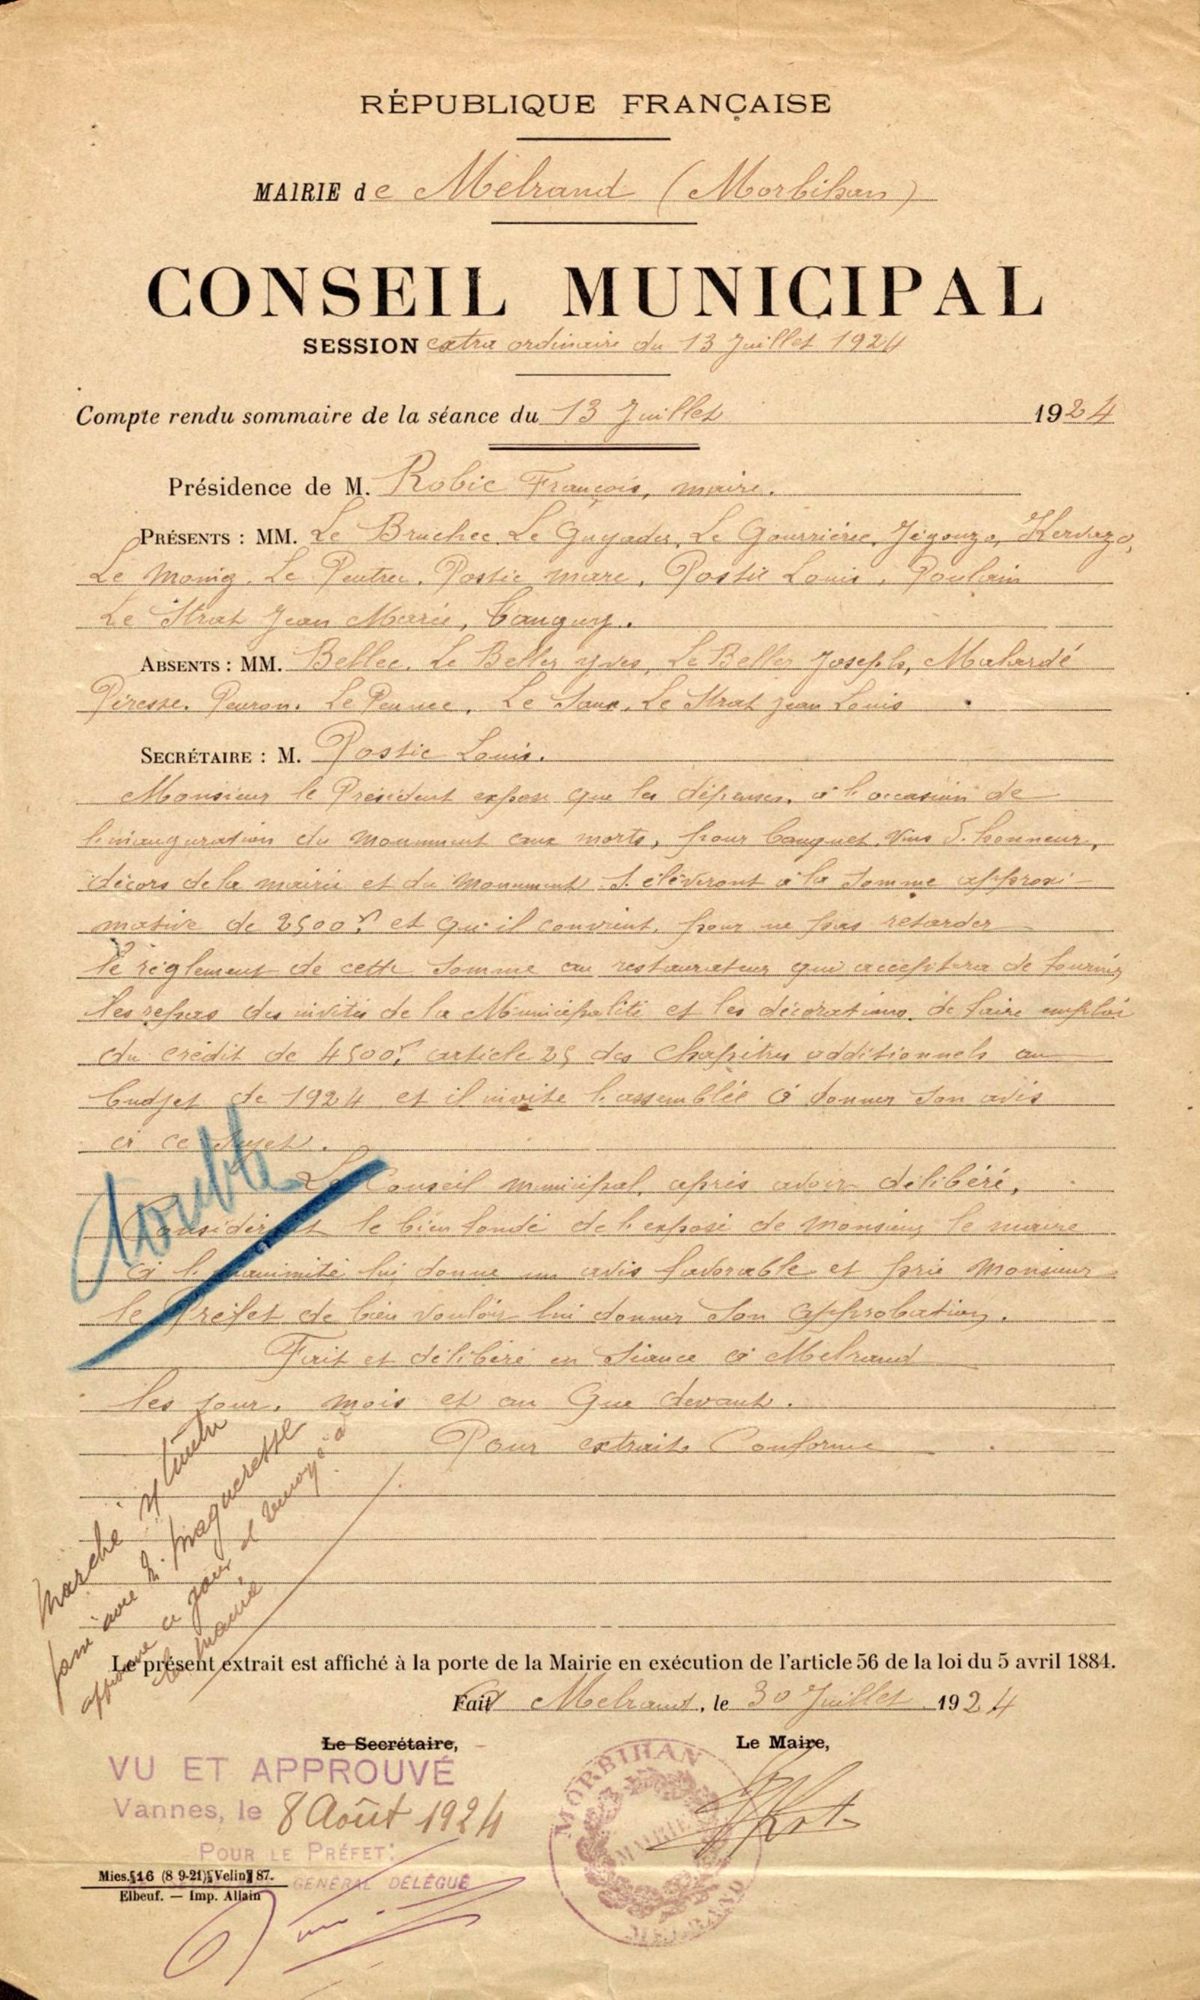 RÉPUBLIQUE FRANÇAISE
MAIRIE de Melrand (Morbihan)
CONSEIL MUNICIPAL
SESSION extra ordinaire du 13 Juillet 1924
Compte rendu sommaire de la séance du 13 Juillet 1924
Présidence de M. Robic François, maire.
PRÉSENTS : MM. Le Bruchec, Le Guyader, Le Gourriérec, Jégouzo, Kervazo,
Le Moing, Le Peutrec, Postic Marc, Postic Louis, Poulain
Le Strat Jean Marie, Tanguy.
ABSENTS : MM. Bellec, Le Beller Yves, Le Beller Joseph, Mahardé
Péresse, Peuron, Le Peunec, Le Saux, Le Strat Jean Louis
SECRÉTAIRE : M. Postic Louis.
Monsieur le Président expose que les dépenses, à l'occasion de
l'inauguration du monument aux morts, pour banquet, vins d'honneur,
décors de la mairie et du monument s'élèveront à la somme approxi-
mative de 2500f et qu'il convient, pour ne pas retarder
le règlement de cette somme au restaurateur qui acceptera de fournir
les repas des invités de la Municipalité et les décorations, de faire emploi
du crédit de 4500f, article 25 des chapitres additionnels au
budget de 1924 et il invite l'assemblée à donner son avis
à ce sujet.
double
Le Conseil municipal, après avoir délibéré,
Considérant le bien fondé de l'exposé de Monsieur le maire
à l'unanimité lui donne un avis favorable et prie Monsieur
le Préfet de bien vouloir lui donner son approbation.
Fait et délibéré en séance à Melrand
les jour, mois et an que devant.
Pour extrait conforme
Marché
avec M.
approuvé ce jour et renvoyé à
la mairie
Le présent extrait est affiché à la porte de la Mairie en exécution de l'article 56 de la loi du 5 avril 1884.
Fait Melrand, le 30 Juillet 1924
Le Secrétaire, Le Maire,
VU ET APPROUVÉ
Vannes, le 8 Août 1924
POUR LE PRÉFET:
GÉNÉRAL DÉLÉGUÉ
MORBIHAN
MAIRIE
MELRAND
Mies. 516 (8 9-21) Velin 87.
Elbeuf. — Imp. Allain